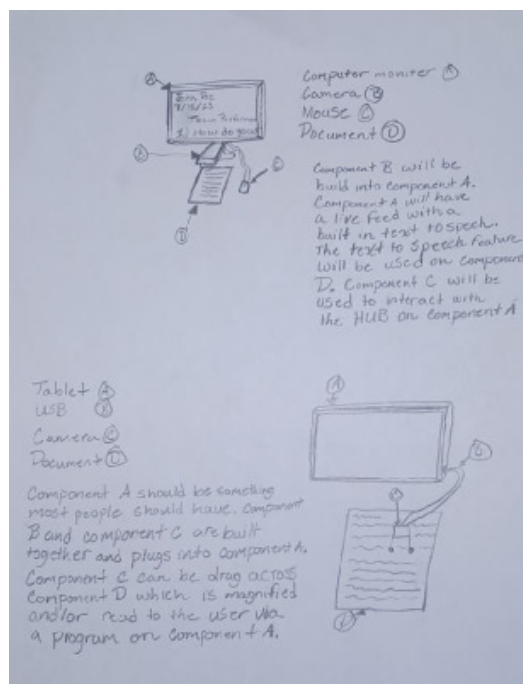 Computer moniter Ⓐ
Camera Ⓑ
Mouse Ⓒ
Document Ⓓ
Ⓐ
7/18/23
1) How do you
Ⓑ
Ⓒ
Ⓓ
Component B will be
build into component A.
Component A will have
a live feed with a
built in text to speech.
The text to speech feature
will be used on component
D. Component C will be
used to interact with
the HUB on component A
Tablet Ⓐ
USB Ⓑ
Camera Ⓒ
Document Ⓓ
Component A should be something
most people should have. Component
B and component C are built
together and plugs into component A.
Component C can be drag across
Component D which is magnified
and/or read to the user via
a program on component A.
Ⓐ
Ⓑ
Ⓒ
Ⓓ